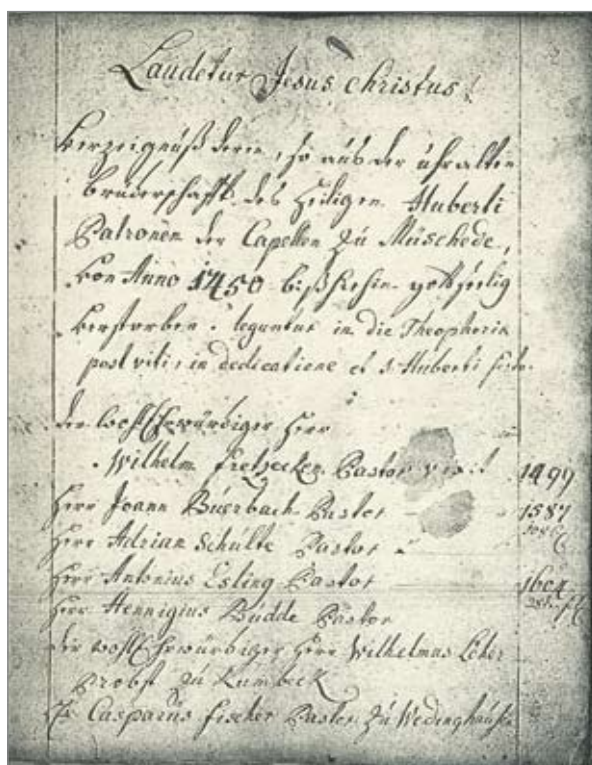 Laudetur Jesus Christus!
Verzeignüß deren, so aus der uhralten
brüderschafft des heiligen Huberti
Patronen der Capellen zu Müschede,
von Anno 1450 biß hehin gottseelig
verstorben. leguntur in die Theophoria
post viti, in dedicatione et s. Huberti festo.
der wohlEhrwürdiger Herr
Wilhelm Fretzecken Pastor 1499
Herr Joann Büerbach Pastor 1587
Herr Adrian Schulte Pastor
Herr Antonius Esling Pastor 1604
Herr Hennigius Büdde Pastor
der wohlEhrwürdiger Herr Wilhelmus
Probst zu Rumbeck
Casparus Fischer Pastor zu Wedinghausen